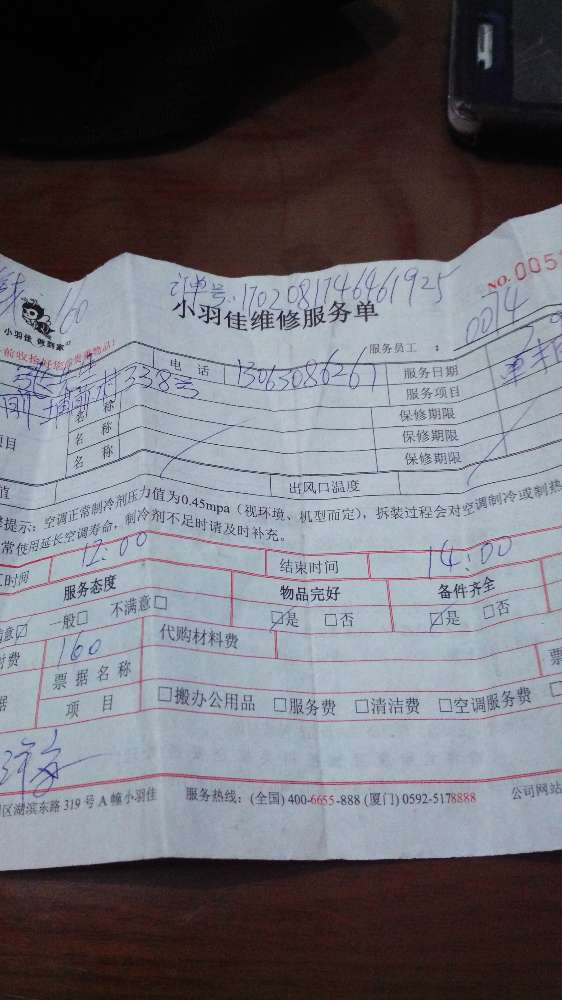 订单号:1702081746461925
160
NO.005
小羽佳 做到家
小羽佳维修服务单
服务员工: 0014
前收拾好您的贵重物品!
电话 13063086267 服务日期
埔前村338号 服务项目
项目 名称 保修期限
名称 保修期限
名称 保修期限
值 出风口温度
提示:空调正常制冷剂压力值为0.45mpa(视环境、机型而定),拆装过程会对空调制冷或制热
常使用延长空调寿命,制冷剂不足时请及时补充。
工时间 12:00 结束时间 14:00
服务态度 物品完好 备件齐全
满意☑ 一般□ 不满意□ ☑是 □否 ☑是 □否
付费 160 代购材料费
据 票据名称 票
项目 □搬办公用品 □服务费 □清洁费 □空调服务费 □
区湖滨东路319号A幢小羽佳 服务热线:(全国)400-6655-888(厦门)0592-5178888 公司网站